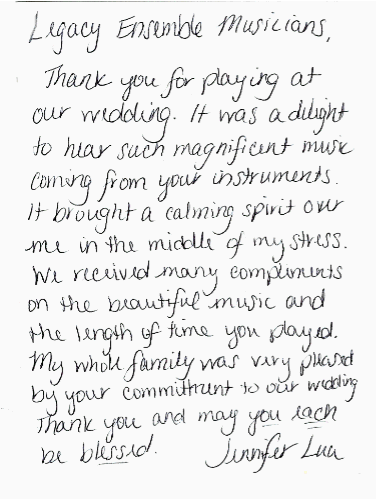 Legacy Ensemble Musicians,
Thank you for playing at
our wedding. It was a delight
to hear such magnificent music
coming from your instruments.
It brought a calming spirit over
me in the middle of my stress.
We received many compliments
on the beautiful music and
the length of time you played.
My whole family was very pleased
by your committment to our wedding
Thank you and may you each
be blessed. Jennifer